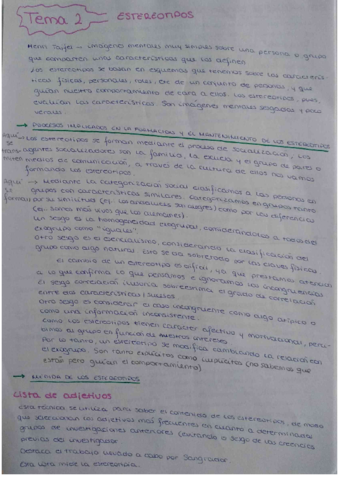 Tema 2 ESTEREOTIPOS
Henri Tajfel - imágenes mentales muy simples sobre una persona o grupo
que comparten unas características que les definen.
Los estereotipos se basan en esquemas que tenemos sobre las caracterís-
ticas físicas, personales, roles, etc de un conjunto de personas, y que
guían nuestro comportamiento de cara a ellos. Los estereotipos, pues,
evalúan las características. Son imágenes mentales sesgadas y poco
veraces.
→ PROCESOS IMPLICADOS EN LA FORMACIÓN Y EL MANTENIMIENTO DE LOS ESTEREOTIPOS
Los estereotipos se forman mediante el proceso de socialización, los
agentes socializadores son la familia, la escuela y el grupo de pares o
medios de comunicación, a través de la cultura
formando los estereotipos.
mediante la categorización social clasificamos a las personas en
grupos con características similares, categorizamos en grupos
por su similitud (ej: los andaluces son alegres) como por las diferencias
(ej: somos más vivos que los alemanes)
Un sesgo es la homogeneidad exogrupal, considerándolos a todos los
exogrupos como "iguales".
Otro sesgo es el esencialismo, considerando la clasificación del
grupo como algo natural.
El cambio de un estereotipo es difícil, ya que prestamos atención
a lo que confirma lo que pensamos e ignoramos las incongruencias
El sesgo correlación ilusoria sobreestima el grado de correlación
entre dos características o sucesos.
Otro sesgo es considerar el caso incongruente como algo atípico o
como una información inconsistente.
como los estereotipos tienen carácter afectivo y motivacional,
al grupo en función de nuestros intereses
Por lo tanto, un estereotipo se modifica cambiando la relación con
el exogrupo. Son tanto explícitos como implícitos (no sabemos que
están pero guían el comportamiento)
→ MEDIDA DE LOS ESTEREOTIPOS
Lista de adjetivos
Esta técnica se utiliza para saber el contenido de los estereotipos, de modo
que seleccionan los adjetivos más frecuentes en cuanto a determinados
grupos de investigaciones anteriores (evitando el sesgo de las creencias
previas del investigador
Destaca el trabajo llevado a cabo por Sangrador
Esta lista mide la estereotipia.